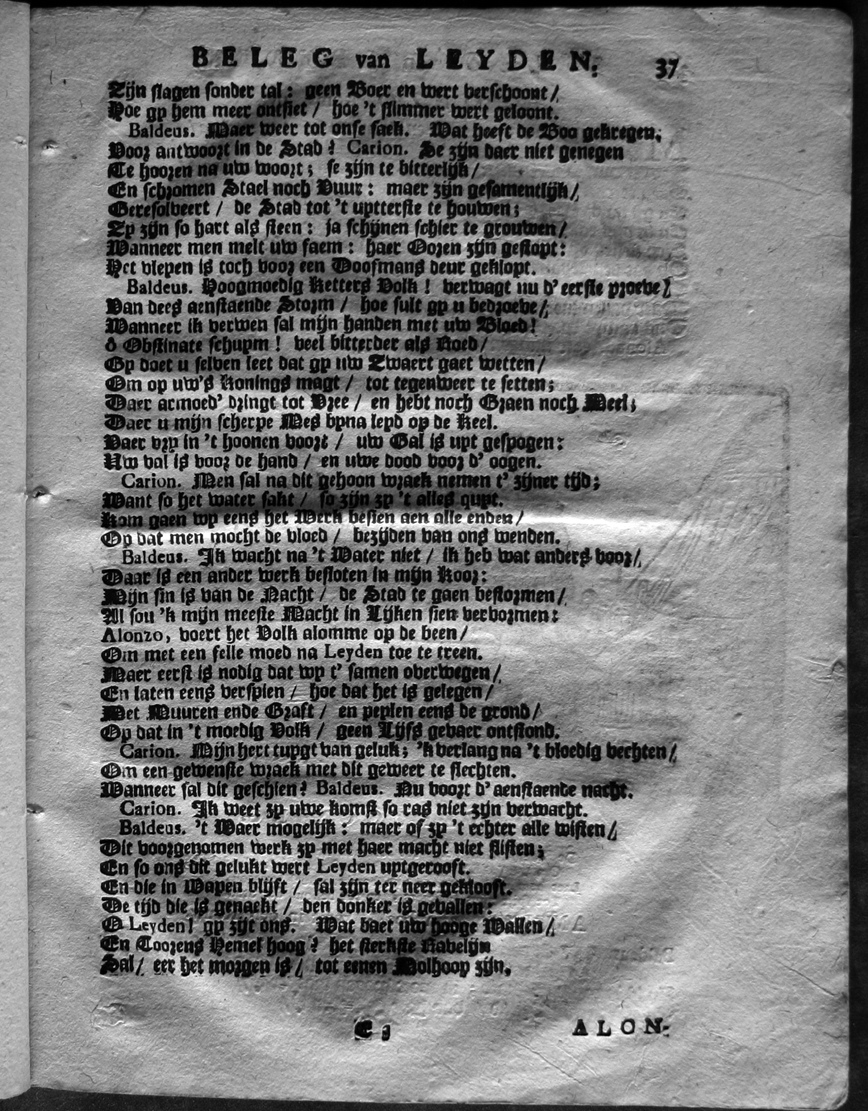 BELEG van LEYDEN. 37
Zijn slagen sonder tal: geen Boer en wert verschoont/
Hoe gy hem meer ontsiet / hoe 't slimmer wert geloont.
Baldeus. Maer weer tot onse saek. Wat heeft de Boo gekregen,
Voor antwoort in de Stad? Carion. Se zijn daer niet genegen
Te hooren na uw woort; se zijn te bitterlijk/
En schromen Stael noch Vuur: maer zijn gesamentlijk/
Geresolveert / de Stad tot 't uytterste te houwen;
Zy zijn so hart als steen: ja schijnen schier te grouwen/
Wanneer men melt uw faem: haer Ooren zijn gestopt:
Het vleyen is toch voor een Doofmans deur geklopt.
Baldeus. Hoogmoedig Ketters Volk! verwagt nu d' eerste proeve/
Van dees aenstaende Storm / hoe sult gy u bedroeve/
Wanneer ik verwen sal mijn handen met uw Bloed!
ô Obstinate schuym! veel bitterder als Roed/
Gy doet u selven leet dat gy uw Zwaert gaet wetten/
Om op uw's Konings magt / tot tegenweer te setten;
Daer armoed' dringt tot Vree / en hebt noch Graen noch Meel;
Daer u mijn scherpe Mes byna leyd op de Keel.
Vaer vry in 't hoonen voort / uw Gal is uyt gespogen:
Uw val is voor de hand / en uwe dood voor d' oogen.
Carion. Men sal na dit gehoon wraek nemen t' zijner tijd;
Want so het water sakt / so zijn zy 't alles quyt.
Kom gaen wy eens het Werk besien aen alle enden/
Op dat men mocht de vloed / bezijden van ons wenden.
Baldeus. Ik wacht na 't Water niet / ik heb wat anders voor/
Daar is een ander werk besloten in mijn Koor:
Mijn sin is van de Nacht / de Stad te gaen bestormen/
Al sou 'k mijn meeste Macht in Lijken sien vervormen:
Alonzo, voert het Volk alomme op de been/
Om met een felle moed na Leyden toe te treen.
Maer eerst is nodig dat wy t' samen overwegen/
En laten eens verspien / hoe dat het is gelegen/
Met Muuren ende Graft / en peylen eens de grond/
Op dat in 't moedig Volk / geen Lijfs gevaer ontstond.
Carion. Mijn hert tuygt van geluk; 'k verlang na 't bloedig vechten/
Om een gewenste wraek met dit geweer te slechten.
Wanneer sal dit geschien? Baldeus. Nu voort d' aenstaende nacht.
Carion. Ik weet zy uwe komst so ras niet zijn verwacht.
Baldeus. 't Waer mogelijk: maer of zy 't echter alle wisten/
Dit voorgenomen werk zy met haer macht niet slisten;
En so ons dit gelukt wert Leyden uytgerooft.
En die in Wapen blijft / sal zijn ter neer geklooft.
De tijd die is genackt / den donker is gevallen:
O Leyden! gy zijt ons. Wat baet uw hooge Wallen/
En Toorens Hemel hoog? het sterkste Ravelijn
Sal/ eer het morgen is/ tot eenen Molhoop zijn.
ALON-